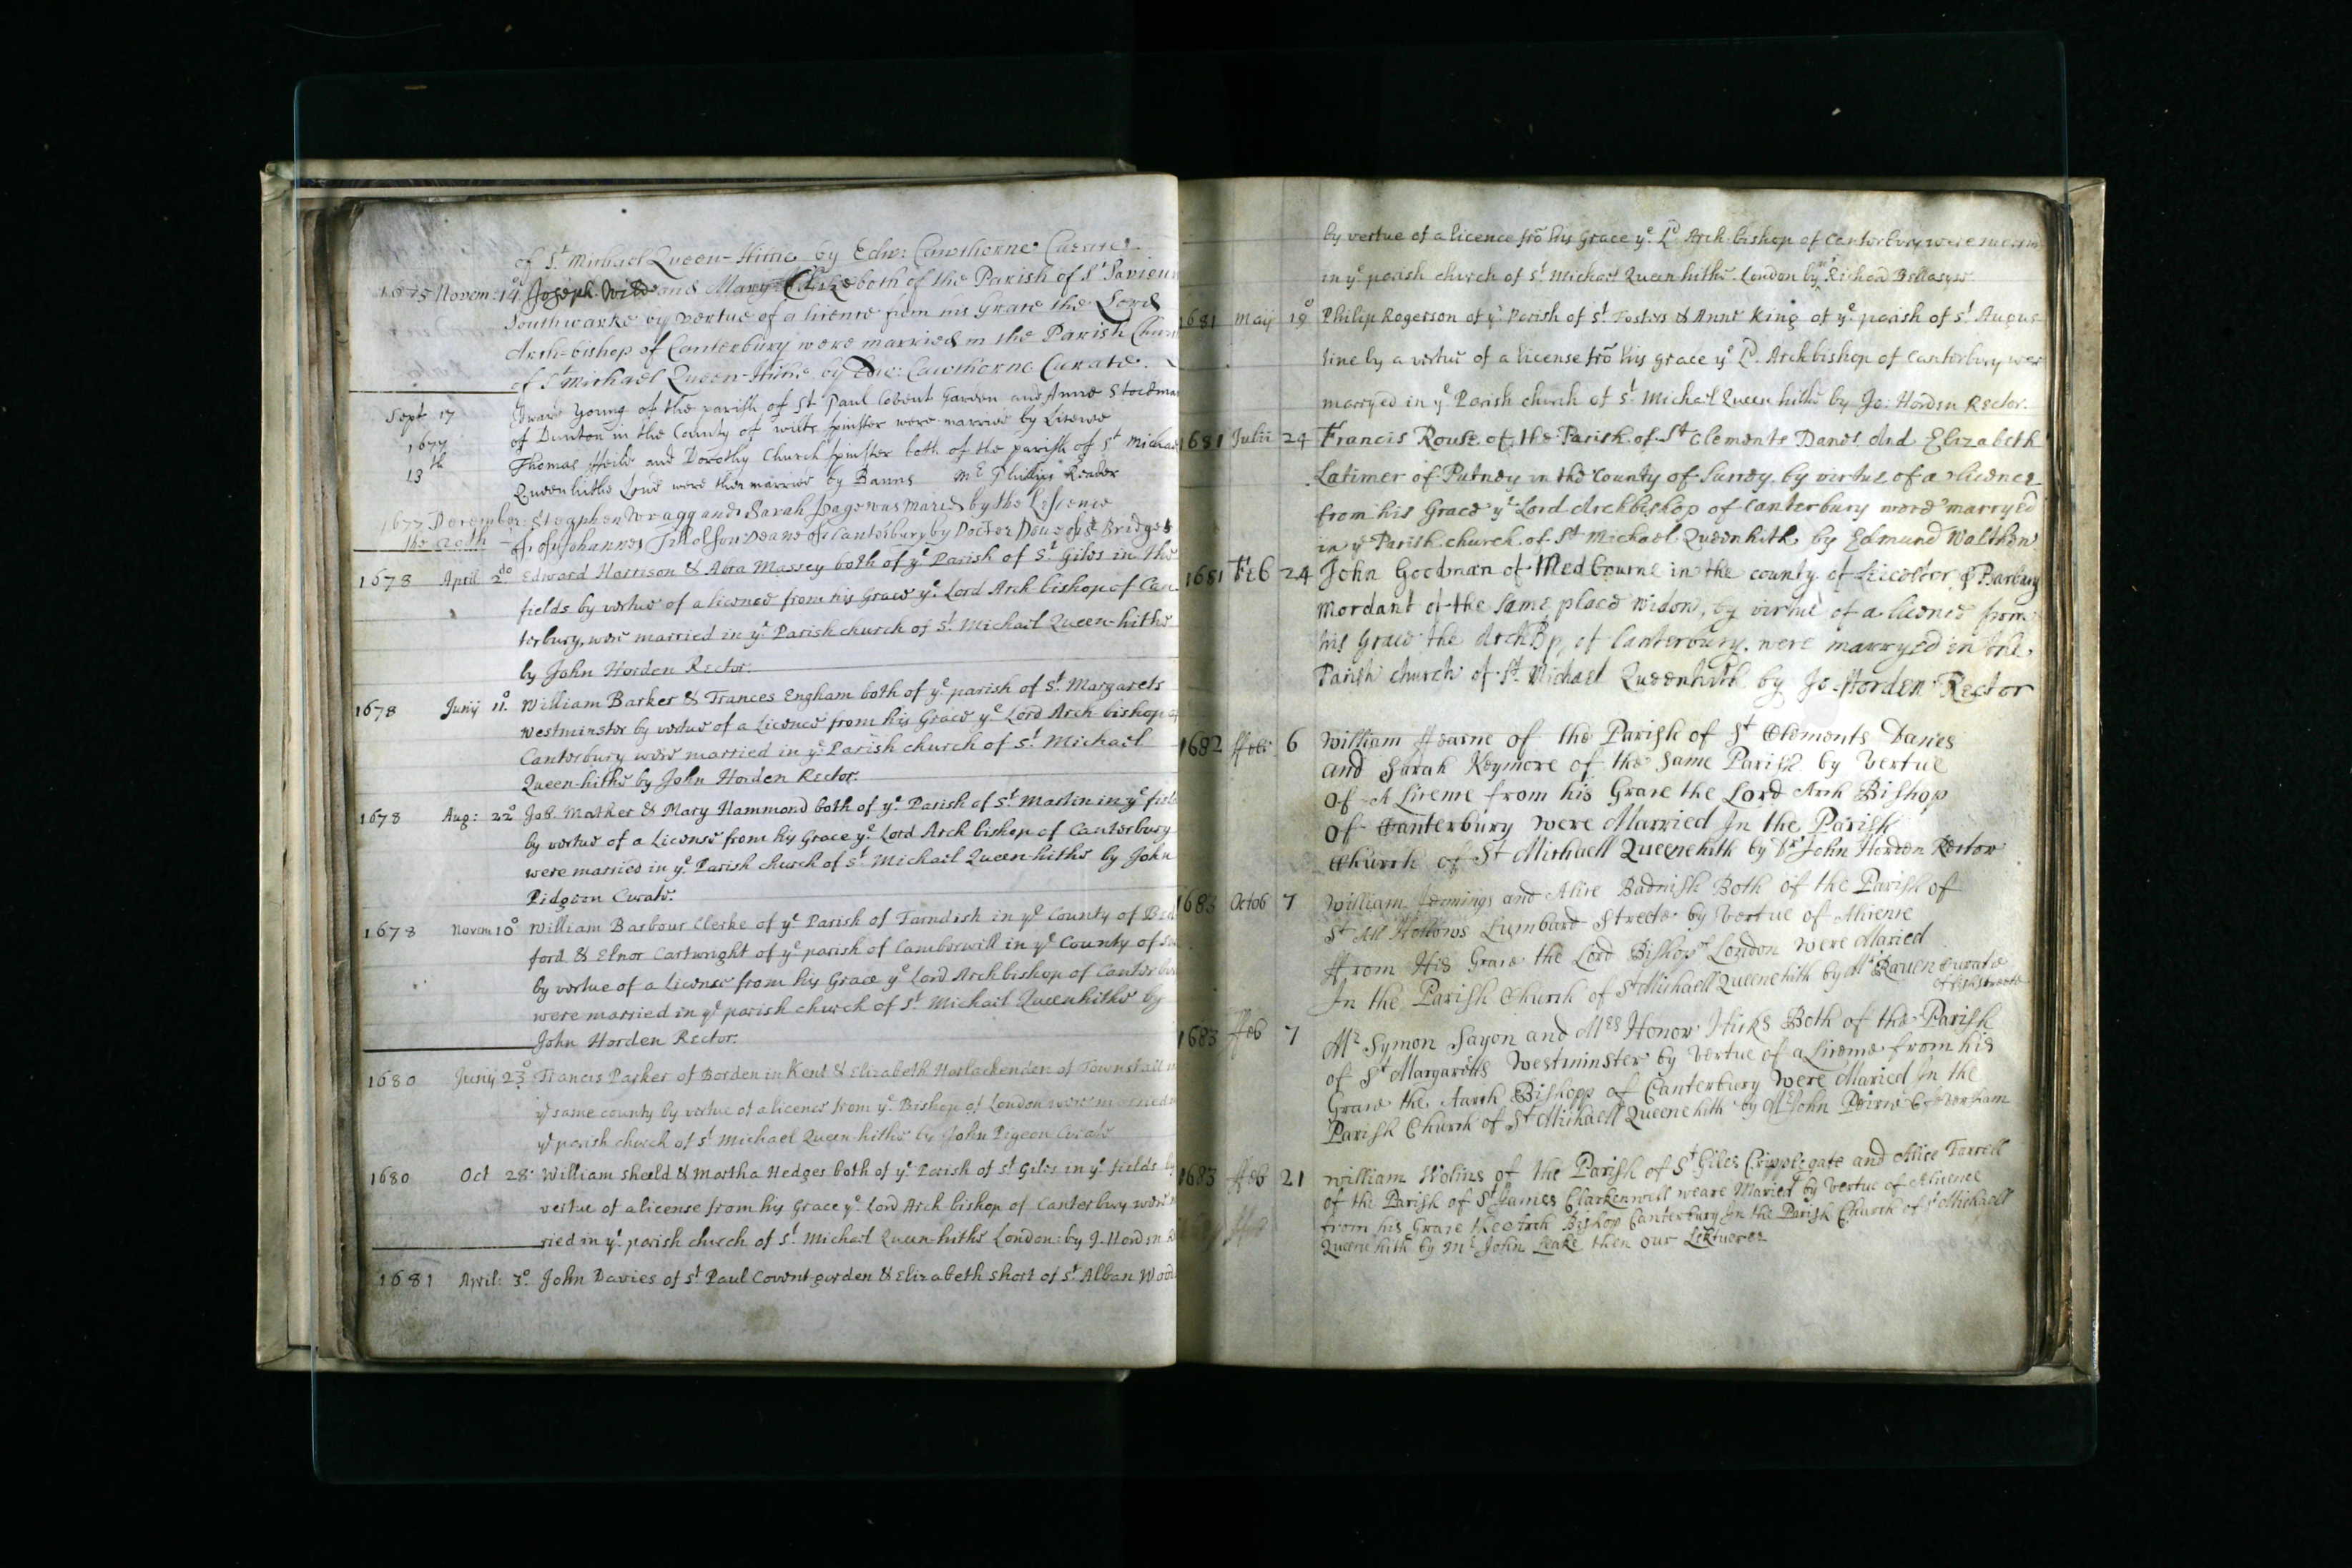 of St Michael Queen-Hithe by Edw: Cawthorne Curate.
1675 Novem: 14 Joseph Wild and Mary both of the Parish of St Saviour
Southwarke by vertue of a licence from his Grace the Lord
Arch-bishop of Canterbury were married in the Parish Chur
of St Michael Queen-Hithe by Edw: Cawthorne Curate.
Sept 17 Young of the parish of St Paul Covent Garden and Anne Stockma
1677 of Dunton in the County of wilts spinster were married by Licence
13th Thomas and Dorothy Church spinster both of the parish of St Michael
Queenhithe were then married by Banns Mr Phillips Reader
1677 December Stephen Wragg and Sarah page was maried by the Lisence
the of Johannes Tillolson Deane of Canterbury by Docter of St Bridges
1678 April 2do Edward Harrison & Abra Massey both of ye Parish of St Giles in the
fields by vertue of a licence from his Grace ye Lord Arch bishop of Can-
terbury, were married in ye Parish church of St Michael Queen-hithe
by John Horden Rector.
1678 Junij 11o William Barker & Frances Engham both of ye parish of St Margarets
westminster by vertue of a Licence from his Grace ye Lord Arch-bishop of
Canterbury were married in ye Parish church of St Michael
Queen-hithe by John Horden Rector.
1678 Aug: 22o Job Mather & Mary Hammond both of ye Parish of St Martin in ye field
by vertue of a License from his Grace ye Lord Arch bishop of Canterbury
were married in ye Parish church of St Michael Queen-hithe by John
Pidgeon Curate.
1678 Novem 10o William Barbour Clerke of ye Parish of Farndish in ye County of Bed
ford & Elnor Cartwright of ye parish of Camberwill in ye County of
by vertue of a License from his Grace ye Lord Archbishop of Canterbu
were married in ye parish church of St Michael Queenhithe by
John Horden Rector.
1680 Junij 23o Francis Parker of Borden in Kent & Elizabeth Harlackenden of Townstall in
ye same county by vertue of a licence from ye Bishop of London were married
ye parish church of St Michael Queen-hithe by John Pigeon Curate
1680 Oct 28. William Sheild & Martha Hedges both of ye Parish of St Giles in ye fields by
vertue of a license from his Grace ye Lord Arch-bishop of Canterbury were
ried in ye parish church of St Michael Queen-hithe London: by J. Horden
1681 April: 3o John Davies of St Paul Covent-garden & Elizabeth Short of St Alban Wood
by vertue of a licence frō his Grace ye Ld Arch-bishop of Canterbury were
in ye parish church of St Michael Queen hithe London by Mr Richard Bellasyse
1681 Maij 19o Philip Rogerson of ye Parish of St Fosters & Anne King of ye parish of St Augus
tine by a vertue of a license frō his grace ye Ld. Archbishop of Canterbury wer
marryed in ye Parish church of St Michael Queen hithe by Jo: Horden Rector.
1681 Julii 24 Francis Rouse of the Parish of St Clements Danes And Elizabeth
Latimer of Putney in the County of Surrey by virtue of a licence
from his Grace ye Lord Archbishop of Canterbury were marryed
in ye Parish church of St Michael Queenhith by Edmund Walthew
1681 Feb 24 John Goodman of Medbourne in the county of Leicester & Barbary
Mordant of the same place widow, by virtue of a licence from
his Grace the ArchBp of Canterbury, were marryed in the
Parish church of St Michael Queenhith by Jo. Horden Rector
1682 6 William Hearne of the Parish of St Clements Danes
and Sarah Keymore of the Same Parish by Vertue
of A Licence from his Grace the Lord Arch Bishop
of Canterbury were Married In the Parish
Church of St Michaell Queenehith by Dr John Horden Rector
1683 Octob 7 William Jennings and Alice Badnish Both of the Parish of
St All Hollows Lumbard Streete by Vertue of Alicence
ffrom His Grace the Lord Bishop of London were Maried
In the Parish Church of St Michaell Queenehith by Mr Raven Curate
of fish streete
1683 ffeb 7 Mr Symon Sayon and Mrs Honor Hicks Both of the Parish
of St Margaretts Westminster by Vertue of a Licence from his
Grace the Aarch Bishopp of Canterbury Were Maried In the
Parish Church of St Michaell Queenehith by Mr John Peirce
1683 ffeb 21 William Wolins of the Parish of St Giles Cripplegate and Alice Farrell
of the Parish of St James Clarkenwill weare Maried by Vertue of Alicence
from his Grace the Arch Bishop Canterbury In the Parish Church of St Michaell
Queenehith by Mr John Leake then our Lektuerer